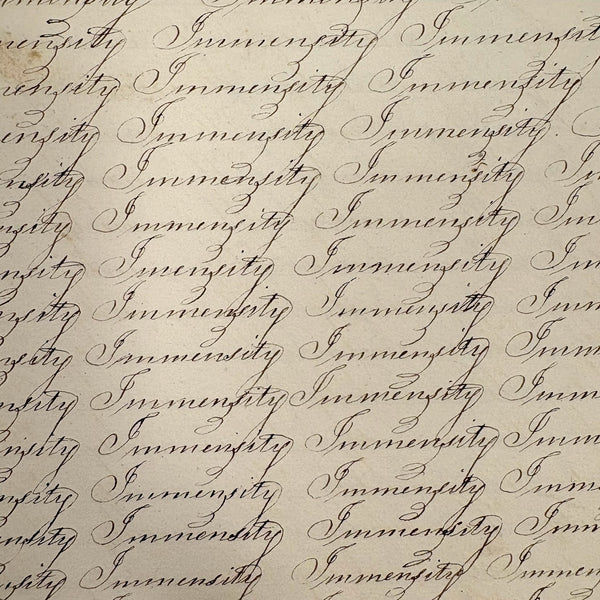 Immensity
ensity Immensity Immensity
ensity Immensity Immensity
ensity Immensity Immensity.
nsity Immensity Immensity Im
nsity Immensity Immensity Im
nsity Imensity Immensity Imm
nsity Immensity Immensity Imm
nsity Immensity Immensity Imm
nsity Immensity Immensity Imm
nsity Immensity Immensity Imm
nsity Immensity Immensity Imm
nsity Immensity Immensity Imm
nsity Immensity Immensity Immen